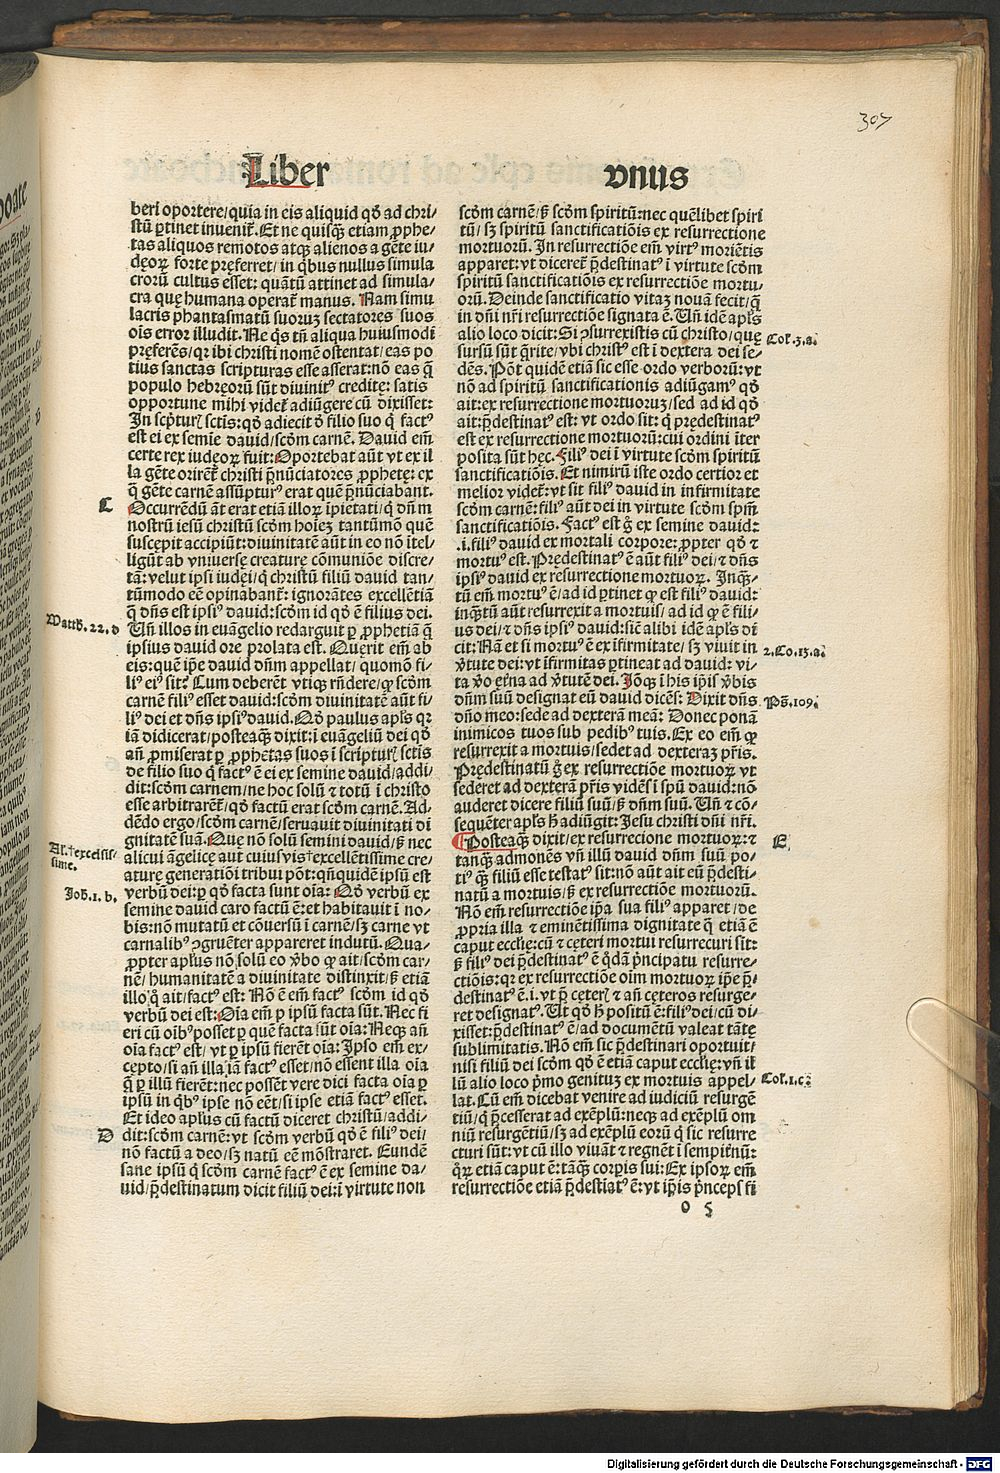 307
Liber vnus
beri oportere/quia in eis aliquid qđ ad chri-
stū ꝑtinet inuenit᷑. Et ne quisq̄ etiam ꝓphe-
tas aliquos remotos atqꝫ alienos a gēte iu-
dęoꝝ forte pręferret/in qͥbus nullus simula
crorū cultus esset: quātū attinet ad simula-
cra quę humana operat᷑ manus. Nam simu
lacris phantasmatū suoruꝫ sectatores suos
oīs error illudit. Ne qͥs tñ aliqua huiusmodi
pręferēs/qꝛ ibi christi nomē ostentat/eas po
tius sanctas scripturas esse asserat: nō eas q̄
populo hebręorū sūt diuinitꝰ creditę: satis
opportune mihi videt᷑ adiūgere cū dixisset:
In scpturꝭ sctis: qđ adiecit đ filio suo qͥ factꝰ
est ei ex semīe dauid/scđm carnē. Dauid em̄
certe rex iudęoꝝ fuit: Oportebat aūt vt ex il
la gēte orirēt᷑ christi p̄nūciatores ꝓphetę: ex
q̄ gēte carnē assūpturꝰ erat quē p̄nūciabant.
C
Occurrēdū āt erat etiā illoꝝ īpietati/qͥ dn̄m
nostrū iesū christū scđm hoīeꝫ tantūmō quē
suscępit accipiūt: diuinitatē aūt in eo nō ītel-
ligūt ab vniuersę creaturę cōmuniōe discre-
tā: velut ipsi iudęi/qͥ christū filiū dauid tan-
tūmodo eē opinabant᷑: ignorātes excellētiā
q̄ dn̄s est ipsiꝰ dauid: scđm id qđ ē filius dei.
Matth. 22. d
Vn̄ illos in euāgelio redarguit ꝑ ꝓphetiā q̄
ipsius dauid ore prolata est. Quęrit em̄ ab
eis: quē ip̄e dauid dn̄m appellat/quomō fi-
liꝰ eiꝰ sit? Cum deberēt vtiqꝫ rn̄dere/ꝙ scđm
carnē filiꝰ esset dauid: scđm diuinitatē aūt fi-
liꝰ dei et dn̄s ipsiꝰ dauid. Qđ paulus apl̄s qꝛ
iā didicerat/posteaqꝫ dixit: ī euāgeliū dei qđ
an̄ ꝓmiserat ꝑ ꝓphetas suos ī scripturꝭ sctis
de filio suo qͥ factꝰ ē ei ex semine dauid/addi
dit: scđm carnem/ne hoc solū ⁊ totū ī christo
esse arbitrarēt᷑/qđ factū erat scđm carnē. Ad-
dēdo ergo/scđm carnē/seruauit diuinitati di
gnitatē suā. Que nō solū semini dauid/ꝫ nec
Al.†excelsis/
sime.
alicui āgelicę aut cuiusuis†excellētissime cre-
aturę generatiōi tribui pōt: qn̄quidē ipsū est
Joh. 1. b.
verbū dei: ꝑ qđ facta sunt oīa: Qđ verbū ex
semine dauid caro factū ē: et habitauit ī no-
bis: nō mutatū et cōuersū ī carnē/sꝫ carne vt
carnalibꝰ ꝯgruēter appareret indutū. Qua-
ꝓpter apl̄us nō solū eo vbo ꝙ ait/scđm car-
nē/humanitatē a diuinitate distinxit/ꝫ etiā
illo qͥ ait/factꝰ est: Nō ē em̄ factꝰ scđm id qđ
verbū dei est: Oīa em̄ ꝑ ipsū facta sūt. Nec fi
eri cū oībꝰ posset ꝑ quē facta sūt oīa: Neqꝫ an̄
oīa factꝰ est/vt ꝑ ipsū fierēt oīa: Ipso em̄ ex-
cępto/si an̄ illa iā factꝰ esset/nō essent illa oīa
q̄ ꝑ illū fierēt: nec possēt vere dici facta oīa ꝑ
ipsū in qͥbꝰ ipse nō eēt/si ipse etiā factꝰ esset.
Et ideo apl̄us cū factū diceret christū/addi-
D
dit: scđm carnē: vt scđm verbū qđ ē filiꝰ dei/
nō factū a deo/sꝫ natū eē mōstraret. Eundē
sane ipsū qͥ scđm carnē factꝰ ē ex semine da-
uid/p̄destinatum dicit filiū dei: ī virtute non
scđm carnē/ꝫ scđm spiritū: nec quēlibet spiri
tū/sꝫ spiritū sanctificatiōis ex resurrectione
mortuorū. In resurrectiōe em̄ virtꝰ moriētis
apparet: vt diceret᷑ p̄destinatꝰ ī virtute scđm
spiritū sanctificatiōis ex resurrectiōe mortu-
orū. Deinde sanctificatio vitaꝫ nouā fecit/q̄
in dn̄i nr̄i resurrectiōe signata ē. Vn̄ idē apl̄s
alio loco dicit: Si ꝯsurrexistis cū christo/quę
Col. 3. a.
sursū sūt qͣrite/vbi christꝰ est ī dextera dei se-
dēs. Pōt quidē etiā sic esse ordo verborū: vt
nō ad spiritū sanctificationis adiūgamꝰ qđ
ait: ex resurrectione mortuoruꝫ/sed ad id qđ
ait: p̄destinatꝰ est: vt ordo sit: qͥ pręđestinatꝰ
est ex resurrectione mortuorū: cui ordini īter
posita sūt hęc. Filiꝰ dei ī virtute scđm spiritū
sanctificatiōis. Et nimirū iste ordo certior et
melior videt᷑: vt sit filiꝰ dauid in infirmitate
scđm carnē: filiꝰ aūt dei in virtute scđm spm̄
sanctificatiōis. Factꝰ est ḡ ex semine dauid:
.i. filiꝰ dauid ex mortali corpore: ꝓpter qđ ⁊
mortuꝰ est. Pręđestinatꝰ ē aūt filiꝰ dei/⁊ dn̄s
ipsiꝰ dauid ex resurrectione mortuoꝝ. Inqꝫ-
tū em̄ mortuꝰ ē/ad id ꝑtinet ꝙ est filiꝰ dauid:
inqꝫtū aūt resurrexit a mortuis/ad id ꝙ ē fili-
us dei/⁊ dn̄s ipsiꝰ dauid: sīc alibi idē apl̄s di
cit: Nā et si mortuꝰ ē ex īfirmitate/sꝫ viuit in
2. Co. 13. a.
vtute dei: vt īfirmitas ꝑtineat ad dauid: vi-
ta vo et̄na ad vtutē dei. Ioqꝫ ī his ip̄is vbis
dn̄m suū designat eū dauid dicēs: Dixit dn̄s
Ps. 109.
dn̄o meo: sede ad dexterā meā: Donec ponā
inimicos tuos sub pedibꝰ tuis. Ex eo em̄ ꝙ
resurrexit a mortuis/sedet ad dexteraꝫ pr̄is.
Pręđestinatū ḡ ex resurrectiōe mortuoꝝ vt
sederet ad dexterā pr̄is vidēs ī spū dauid: nō
auderet dicere filiū suū/ꝫ dn̄m suū. Vn̄ ⁊ cō-
sequēter apl̄s h̄ adiūgit: Jesu christi dn̄i nr̄i.
E
Posteaqꝫ dixit/ex resurrecione mortuoꝝ: ⁊
tanqꝫ admonēs vn̄ illū dauid dn̄m suū po-
tiꝰ qꝫ filiū esse testatꝰ sit: nō aūt ait eū p̄desti-
natū a mortuis/ꝫ ex resurrectione mortuorū.
Nō em̄ resurrectiōe ip̄a sua filiꝰ apparet/de
ꝓpria illa ⁊ eminētissima dignitate qͥ etiā ē
caput eccl̄ię: cū ⁊ cęteri mortui resurrecuri sīt:
ꝫ filiꝰ dei p̄destinatꝰ ē qͣdā pncipatu resurre-
ctiōis: qꝛ ex resurrectiōe oīm mortuoꝝ ip̄e p̄-
destinatꝰ ē. i. vt p̄ cęterꝭ ⁊ an̄ cęteros resurge-
ret designatꝰ. Vt qđ h̄ positū ē: filiꝰ dei/cū di-
xisset: p̄destinatꝰ ē/ad documētū valeat tātę
sublimitatis. Nō em̄ sic p̄destinari oportuit/
nisi filiū dei scđm qđ ē etiā caput eccl̄ię: vn̄ il
lū alio loco pͥmo genituꝫ ex mortuis appel-
Col. 1. c.
lat. Cū em̄ dicebat venire ad iudiciū resurgē
tiū/qͥ p̄cesserat ad exēplū: neqꝫ ad exēplū om
niū resurgētiū/sꝫ ad exēplū eorū qͥ sic resurre
cturi sūt: vt cū illo viuāt ⁊ regnēt ī sempitnū:
qͦꝝ etiā caput ē: tāqꝫ corꝑis sui: Ex ipsoꝝ em̄
resurrectiōe etiā p̄destiatꝰ ē: vt ip̄is pnceps fi
o 5
Digitalisierung gefördert durch die Deutsche Forschungsgemeinschaft - DFG